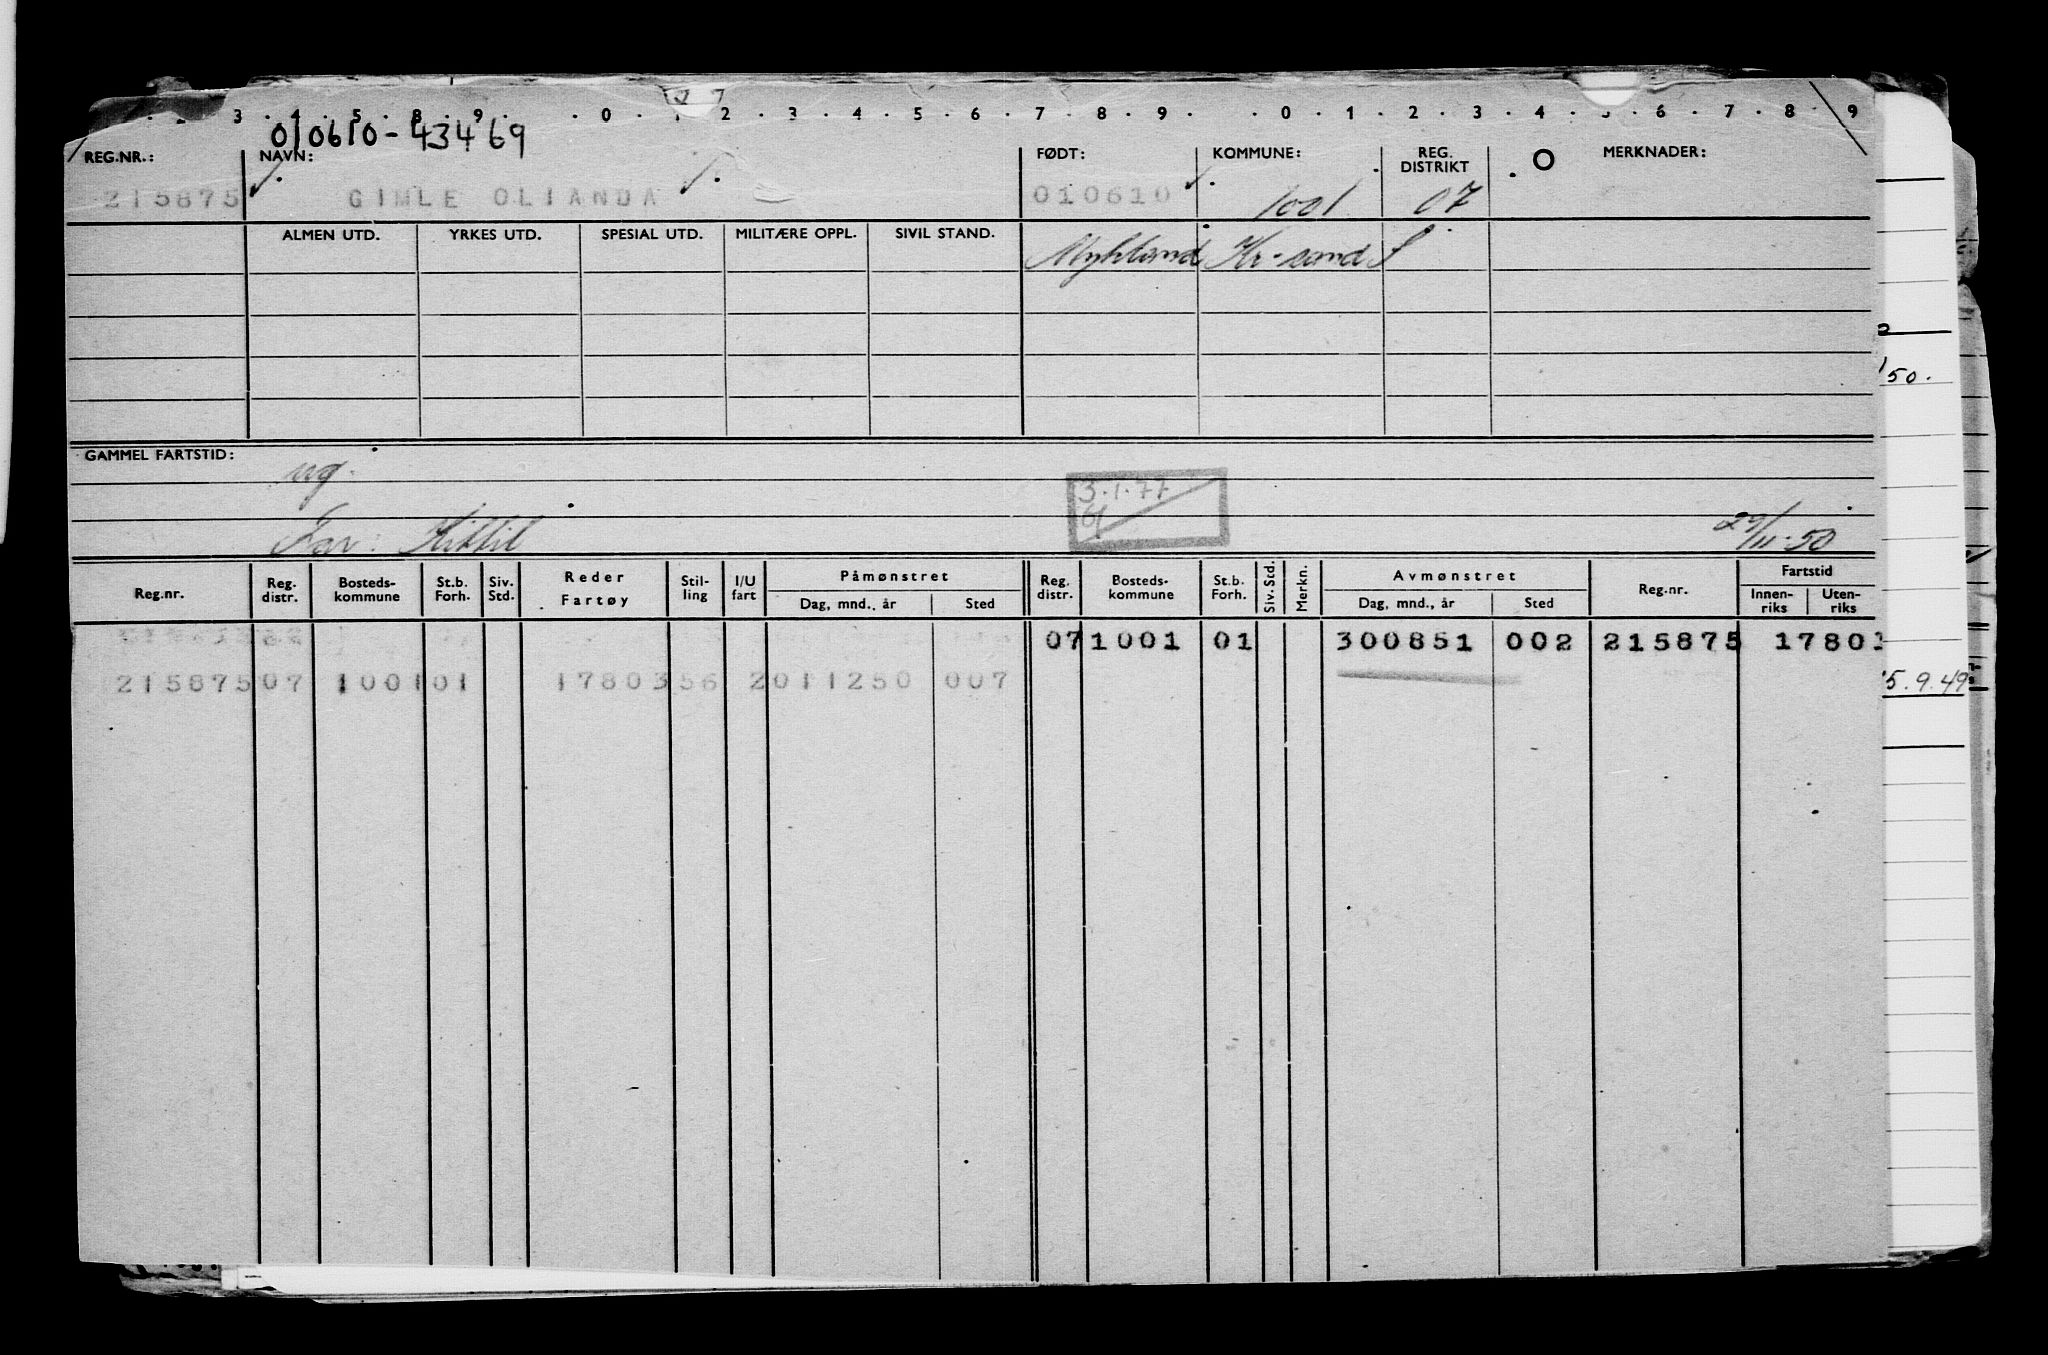 3 . 4 . 5 . 8 . 9 . . 0 . 1 . 2 . 3 . 4 . 5 . 6 . 7 . 8 . 9 . . 0 . 1 . 2 . 3 . 4 . 5 . 6 . 7 . 8 . 9
010610-43469
REG.NR.: NAVN: FØDT: KOMMUNE: REG. DISTRIKT O MERKNADER:
215875 GIMLE OLIANDA 010610 1001 07
ALMEN UTD. YRKES UTD. SPESIAL UTD. MILITÆRE OPPL. SIVIL STAND. Mykland Kr-sand S
50.
GAMMEL FARTSTID:
ug.
3.1.77
Far: Kittil 29/11-50
Reg.nr. Reg. distr. Bosteds- kommune St.b. Forh. Siv. Std. Reder Fartøy Stil- ling I/U fart Påmønstret Dag, mnd., år Sted Reg. distr. Bosteds- kommune St.b. Forh. Siv. Std. Merkn. Avmønstret Dag, mnd., år Sted Reg.nr. Fartstid Innen- riks Uten- riks
07 1001 01 300851 002 215875 1780
215875 07 1001 01 17803 56 2 011250 007
5.9.49